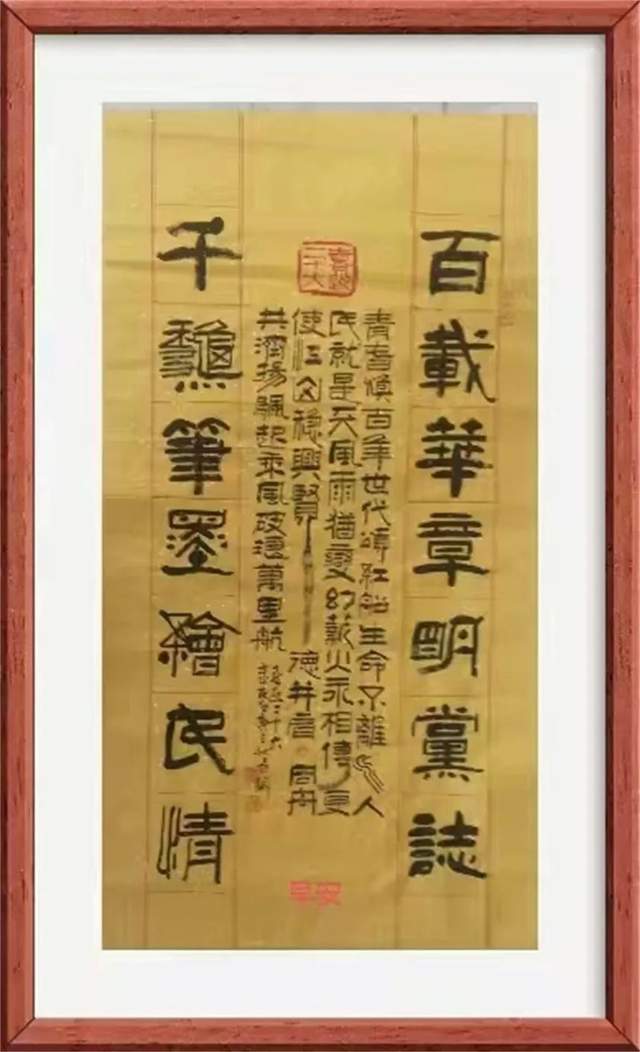 百載華章明黨誌
青書煥百年世代頌紅船生命不離人
民就是天風雨猶變幻薪火永相傳更
使江山穩興賢德并肩同舟
共濟揚帆起乘風破浪萬里航
千龝筆墨繪民情
早安